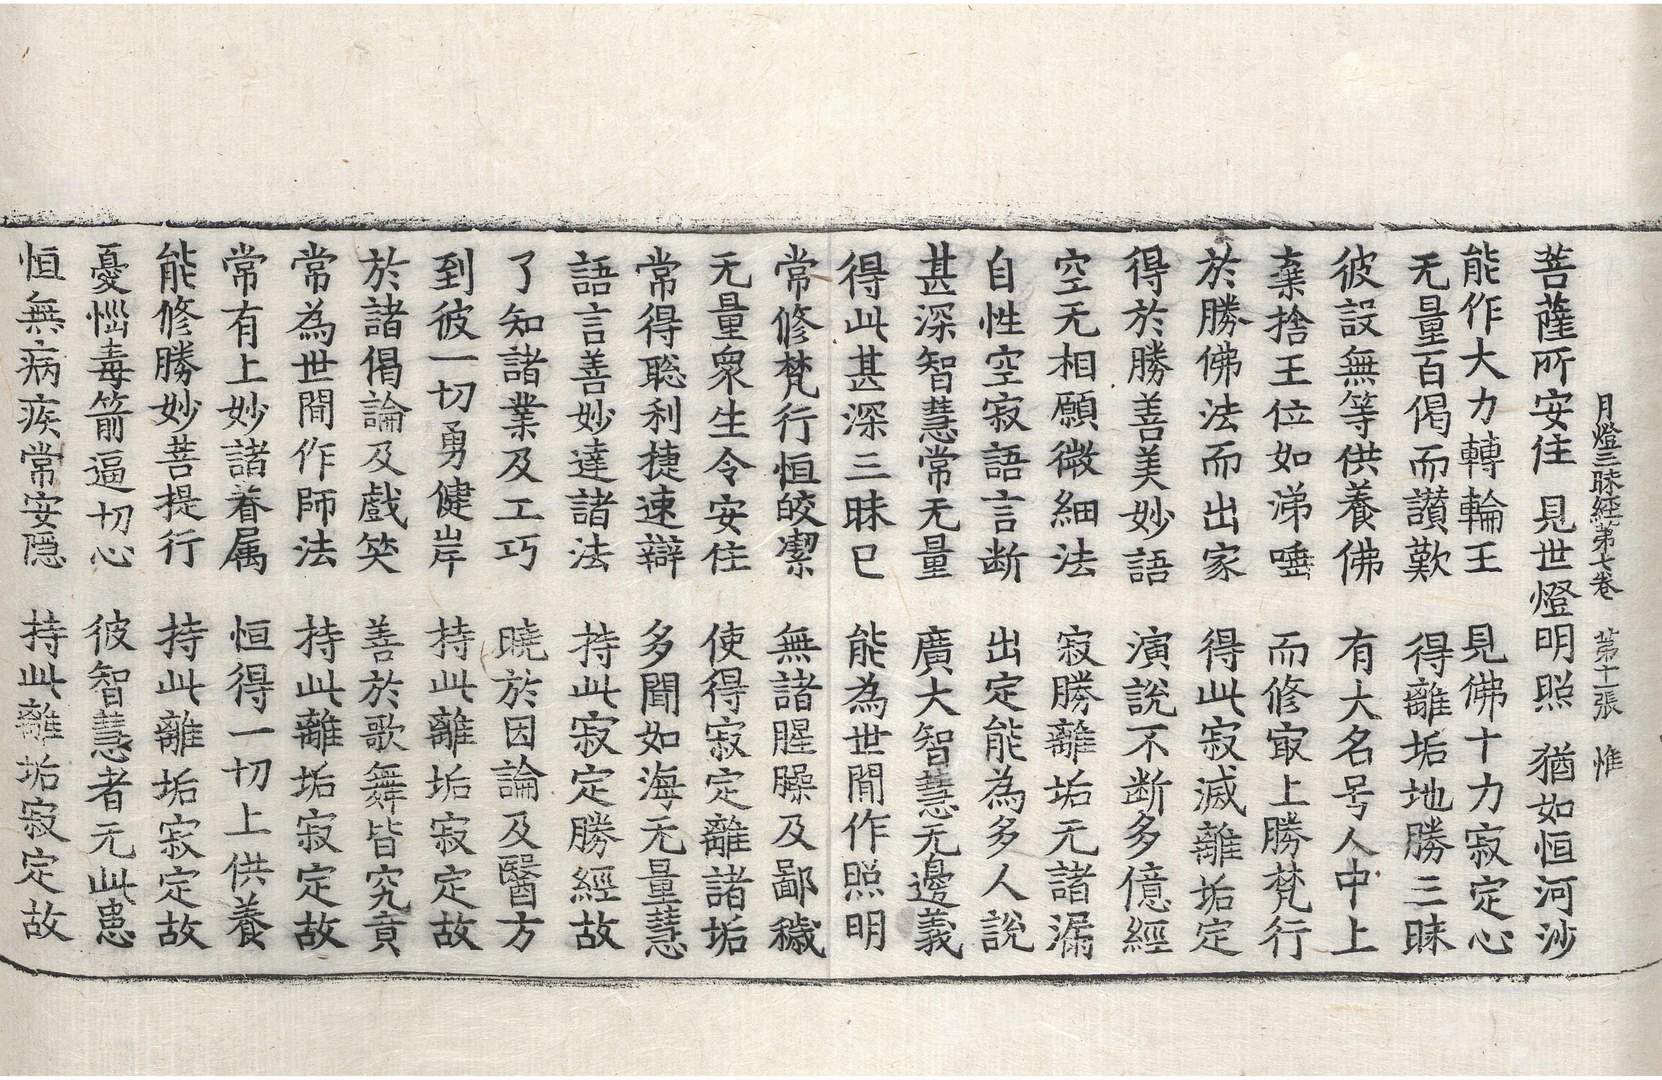 月燈三昧經第七卷 第十一張 惟
菩薩所安住 見世燈明照 猶如恒河沙
能作大力轉輪王 見佛十力寂定心
无量百偈而讃歎 得離垢地勝三昧
彼設無等供養佛 有大名号人中上
棄捨王位如涕唾 而修㝡上勝梵行
於勝佛法而出家 得此寂滅離垢定
得於勝善美妙語 演說不断多億經
空无相願微細法 寂勝離垢无諸漏
自性空寂語言断 出定能為多人說
甚深智慧常无量 廣大智慧无邊義
得此甚深三昧巳 能為世間作照明
常修梵行恒皎潔 無諸腥臊及鄙穢
无量衆生令安住 使得寂定離諸垢
常得聡利捷速辯 多聞如海无量慧
語言善妙達諸法 持此寂定勝經故
了知諸業及工巧 曉於因論及醫方
到彼一切勇健岸 持此離垢寂定故
於諸偈論及戲笑 善於歌舞皆究竟
常為世間作師法 持此離垢寂定故
常有上妙諸眷属 恒得一切上供養
能修勝妙菩提行 持此離垢寂定故
憂惱毒箭逼切心 彼智慧者无此患
恒無病疾常安隠 持此離垢寂定故